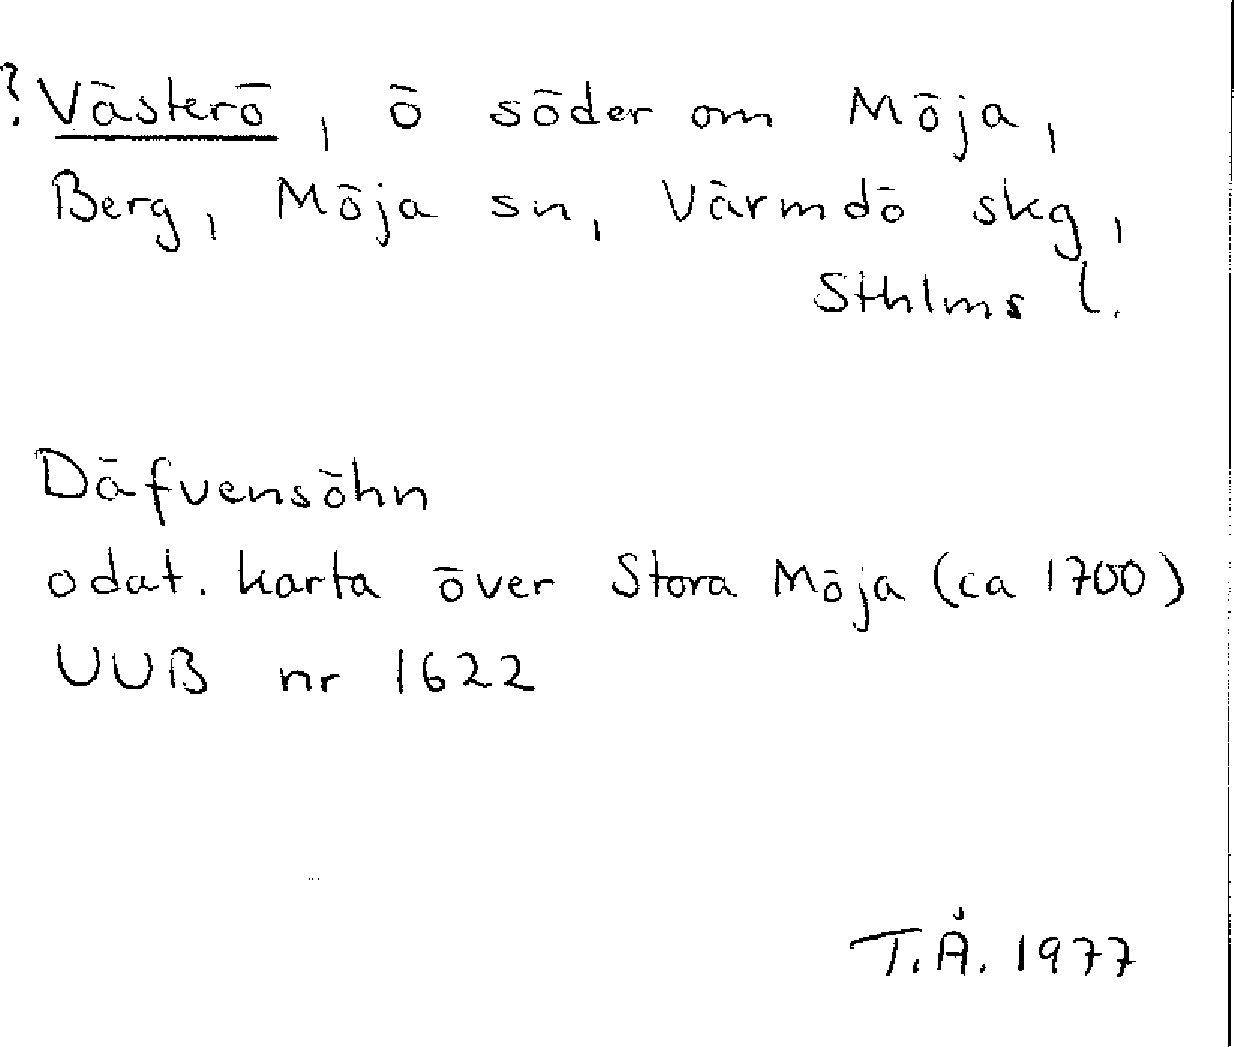 ? Västerö, ö söder om Möja,
Berg, Möja sn, Värmdö skg,
Sthlms l.
Däfvensöhn
odat. karta över Stora Möja (ca 1700)
UUB nr 1622
T.Å. 1977